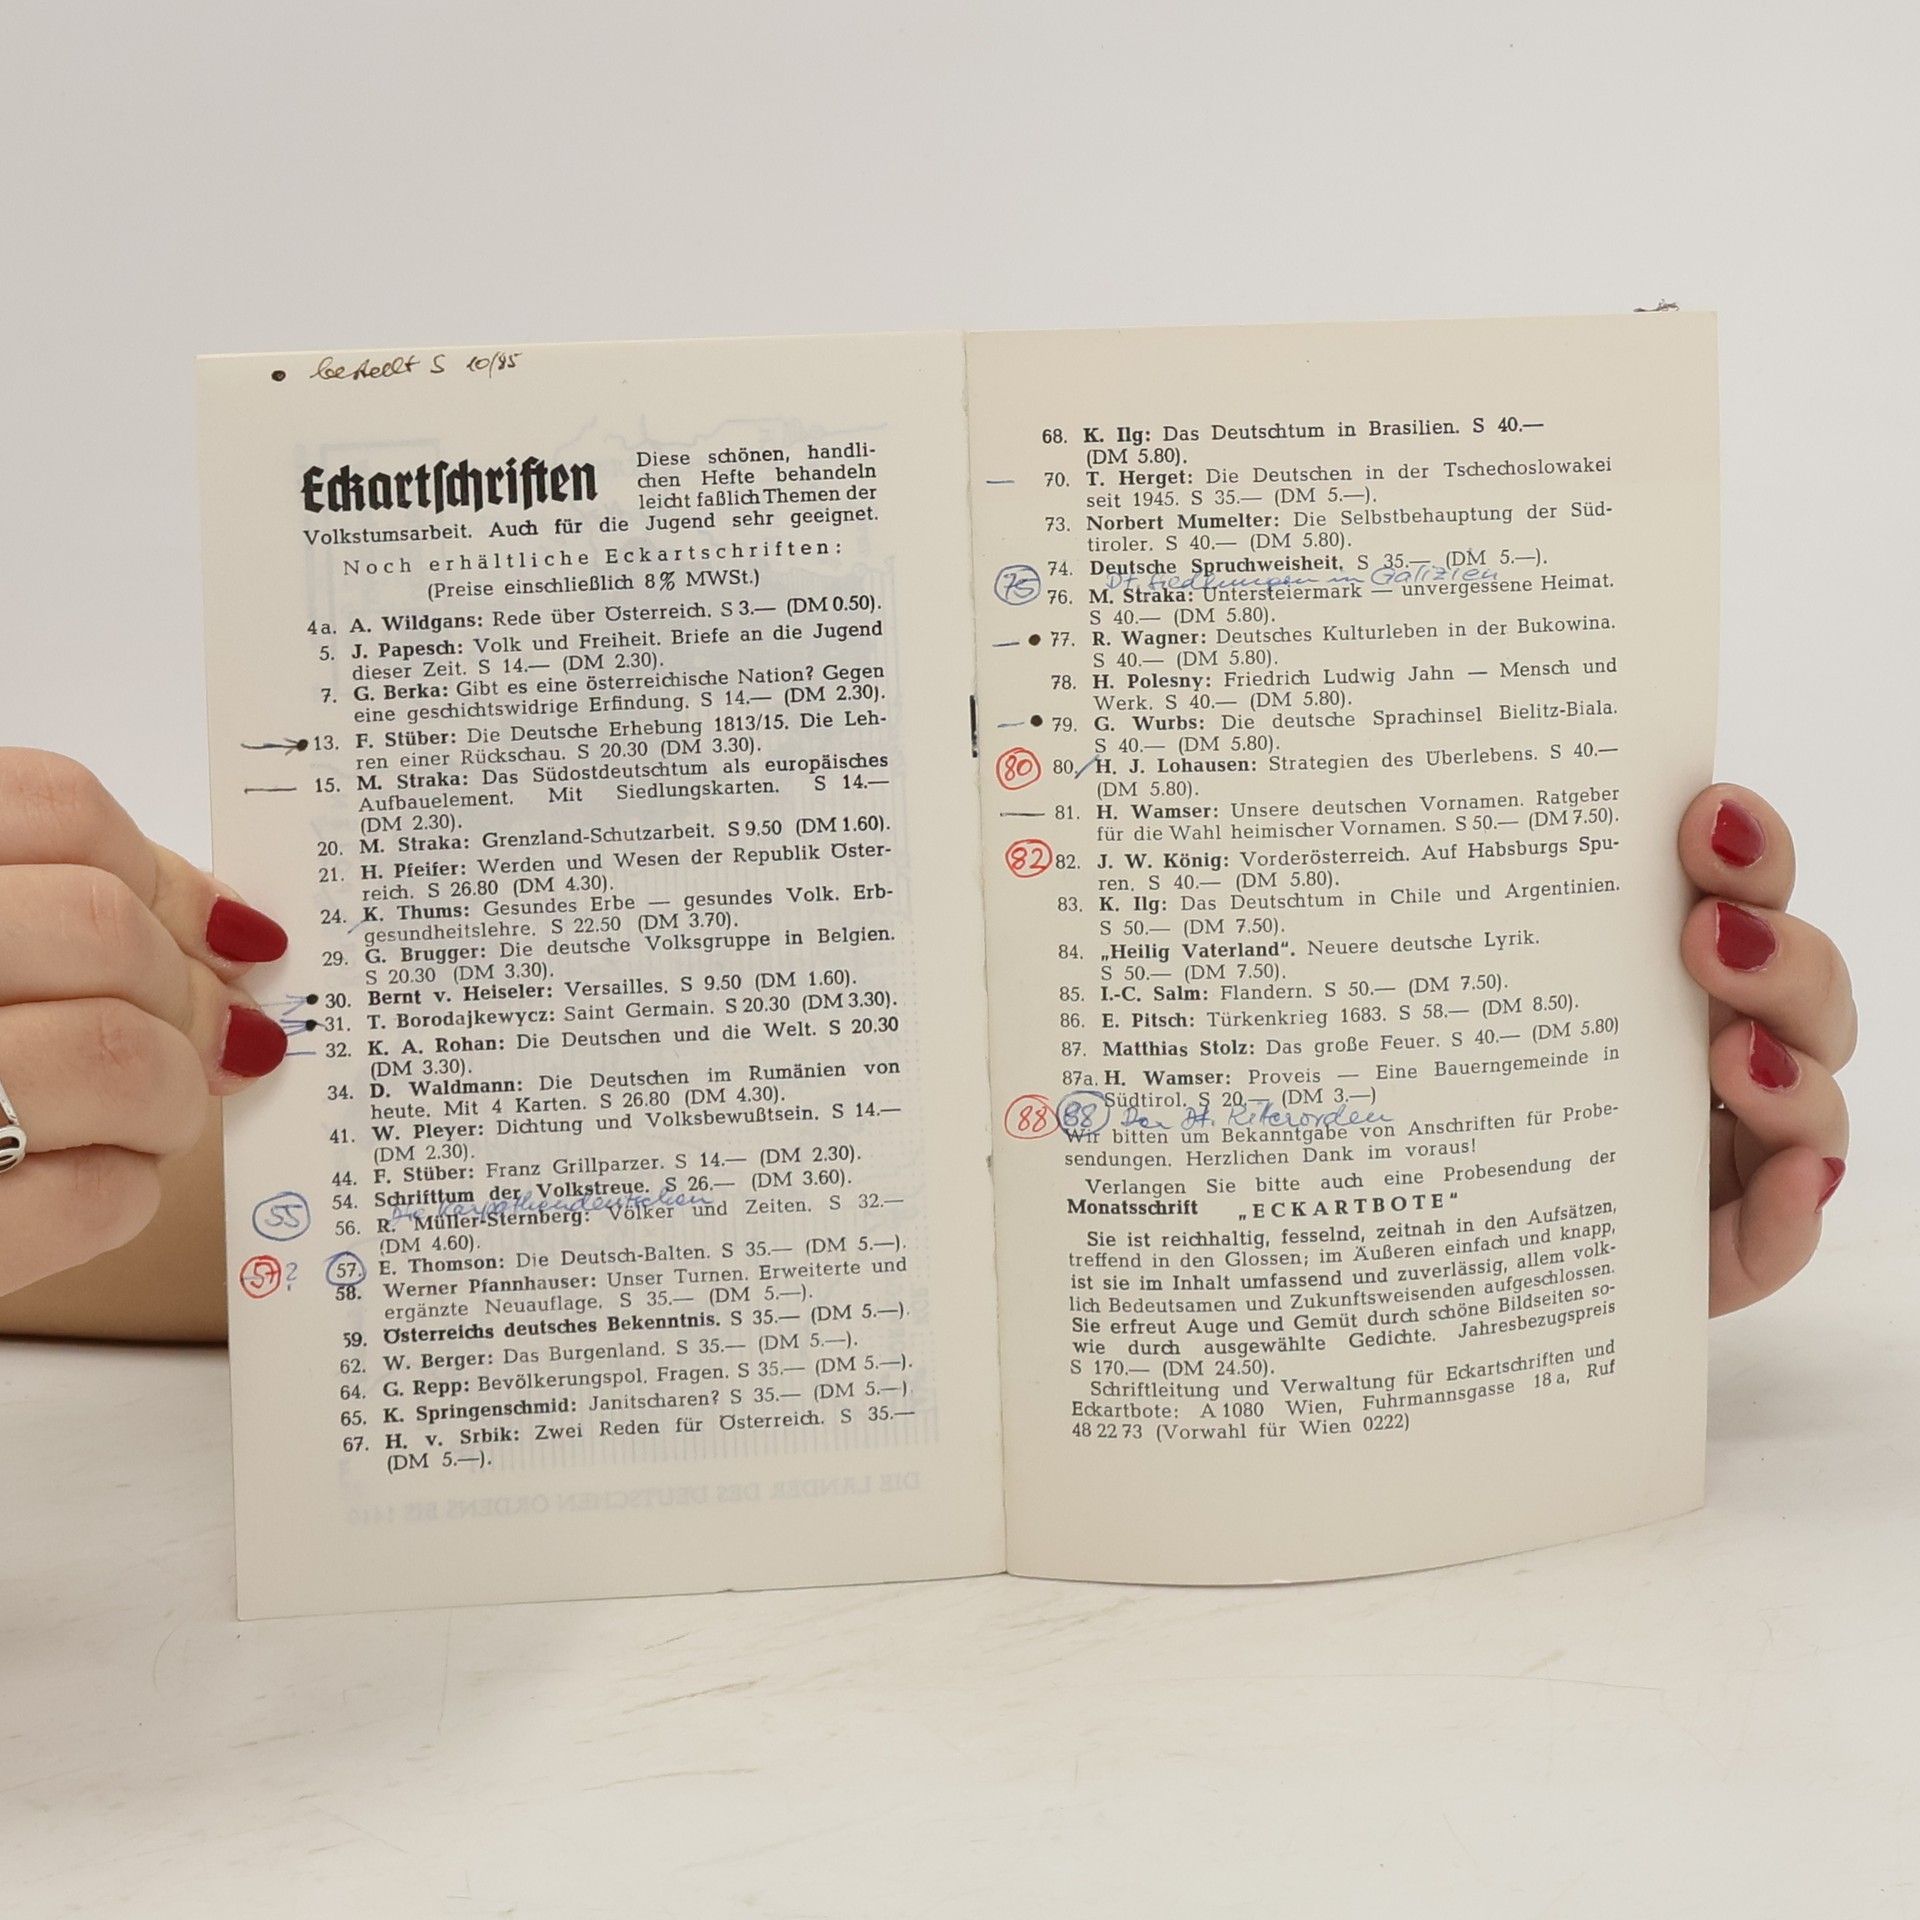 • bestellt S 10/85
Eckartschriften
Diese schönen, handli-
chen Hefte behandeln
leicht faßlich Themen der
Volkstumsarbeit. Auch für die Jugend sehr geeignet.
Noch erhältliche Eckartschriften:
(Preise einschließlich 8% MWSt.)
4a. A. Wildgans: Rede über Österreich. S 3.— (DM 0.50).
5. J. Papesch: Volk und Freiheit. Briefe an die Jugend
dieser Zeit. S 14.— (DM 2.30).
7. G. Berka: Gibt es eine österreichische Nation? Gegen
eine geschichtswidrige Erfindung. S 14.— (DM 2.30).
13. F. Stüber: Die Deutsche Erhebung 1813/15. Die Leh-
ren einer Rückschau. S 20.30 (DM 3.30).
15. M. Straka: Das Südostdeutschtum als europäisches
Aufbauelement. Mit Siedlungskarten. S 14.—
(DM 2.30).
20. M. Straka: Grenzland-Schutzarbeit. S 9.50 (DM 1.60).
21. H. Pfeifer: Werden und Wesen der Republik Öster-
reich. S 26.80 (DM 4.30).
24. K. Thums: Gesundes Erbe — gesundes Volk. Erb-
gesundheitslehre. S 22.50 (DM 3.70).
29. G. Brugger: Die deutsche Volksgruppe in Belgien.
S 20.30 (DM 3.30).
• 30. Bernt v. Heiseler: Versailles. S 9.50 (DM 1.60).
• 31. T. Borodajkewycz: Saint Germain. S 20.30 (DM 3.30).
32. K. A. Rohan: Die Deutschen und die Welt. S 20.30
(DM 3.30).
34. D. Waldmann: Die Deutschen im Rumänien von
heute. Mit 4 Karten. S 26.80 (DM 4.30).
41. W. Pleyer: Dichtung und Volksbewußtsein. S 14.—
(DM 2.30).
44. F. Stüber: Franz Grillparzer. S 14.— (DM 2.30).
54. Schrifttum der Volkstreue. S 26.— (DM 3.60).
55 Die Karpathendeutschen
56. R. Müller-Sternberg: Völker und Zeiten. S 32.—
(DM 4.60).
57? 57. E. Thomson: Die Deutsch-Balten. S 35.— (DM 5.—).
58. Werner Pfannhauser: Unser Turnen. Erweiterte und
ergänzte Neuauflage. S 35.— (DM 5.—).
59. Österreichs deutsches Bekenntnis. S 35.— (DM 5.—).
62. W. Berger: Das Burgenland. S 35.— (DM 5.—).
64. G. Repp: Bevölkerungspol. Fragen. S 35.— (DM 5.—).
65. K. Springenschmid: Janitscharen? S 35.— (DM 5.—)
67. H. v. Srbik: Zwei Reden für Österreich. S 35.—
(DM 5.—).
DIE LÄNDER DES DEUTSCHEN ORDENS BIS 1410
68. K. Ilg: Das Deutschtum in Brasilien. S 40.—
(DM 5.80).
70. T. Herget: Die Deutschen in der Tschechoslowakei
seit 1945. S 35.— (DM 5.—).
73. Norbert Mumelter: Die Selbstbehauptung der Süd-
tiroler. S 40.— (DM 5.80).
74. Deutsche Spruchweisheit. S 35.— (DM 5.—).
75 Dt. Siedlungen in Galizien
76. M. Straka: Untersteiermark — unvergessene Heimat.
S 40.— (DM 5.80).
• 77. R. Wagner: Deutsches Kulturleben in der Bukowina.
S 40.— (DM 5.80).
78. H. Polesny: Friedrich Ludwig Jahn — Mensch und
Werk. S 40.— (DM 5.80).
• 79. G. Wurbs: Die deutsche Sprachinsel Bielitz-Biala.
S 40.— (DM 5.80).
80 80. H. J. Lohausen: Strategien des Überlebens. S 40.—
(DM 5.80).
81. H. Wamser: Unsere deutschen Vornamen. Ratgeber
für die Wahl heimischer Vornamen. S 50.— (DM 7.50).
82 82. J. W. König: Vorderösterreich. Auf Habsburgs Spu-
ren. S 40.— (DM 5.80).
83. K. Ilg: Das Deutschtum in Chile und Argentinien.
S 50.— (DM 7.50).
84. „Heilig Vaterland“. Neuere deutsche Lyrik.
S 50.— (DM 7.50).
85. I.-C. Salm: Flandern. S 50.— (DM 7.50).
86. E. Pitsch: Türkenkrieg 1683. S 58.— (DM 8.50).
87. Matthias Stolz: Das große Feuer. S 40.— (DM 5.80)
87a. H. Wamser: Proveis — Eine Bauerngemeinde in
Südtirol. S 20.— (DM 3.—)
88 88 Der Dt. Ritterorden
Wir bitten um Bekanntgabe von Anschriften für Probe-
sendungen. Herzlichen Dank im voraus!
Verlangen Sie bitte auch eine Probesendung der
Monatsschrift „ECKARTBOTE“
Sie ist reichhaltig, fesselnd, zeitnah in den Aufsätzen,
treffend in den Glossen; im Äußeren einfach und knapp,
ist sie im Inhalt umfassend und zuverlässig, allem volk-
lich Bedeutsamen und Zukunftsweisenden aufgeschlossen.
Sie erfreut Auge und Gemüt durch schöne Bildseiten so-
wie durch ausgewählte Gedichte. Jahresbezugspreis
S 170.— (DM 24.50).
Schriftleitung und Verwaltung für Eckartschriften und
Eckartbote: A 1080 Wien, Fuhrmannsgasse 18 a, Ruf
48 22 73 (Vorwahl für Wien 0222)